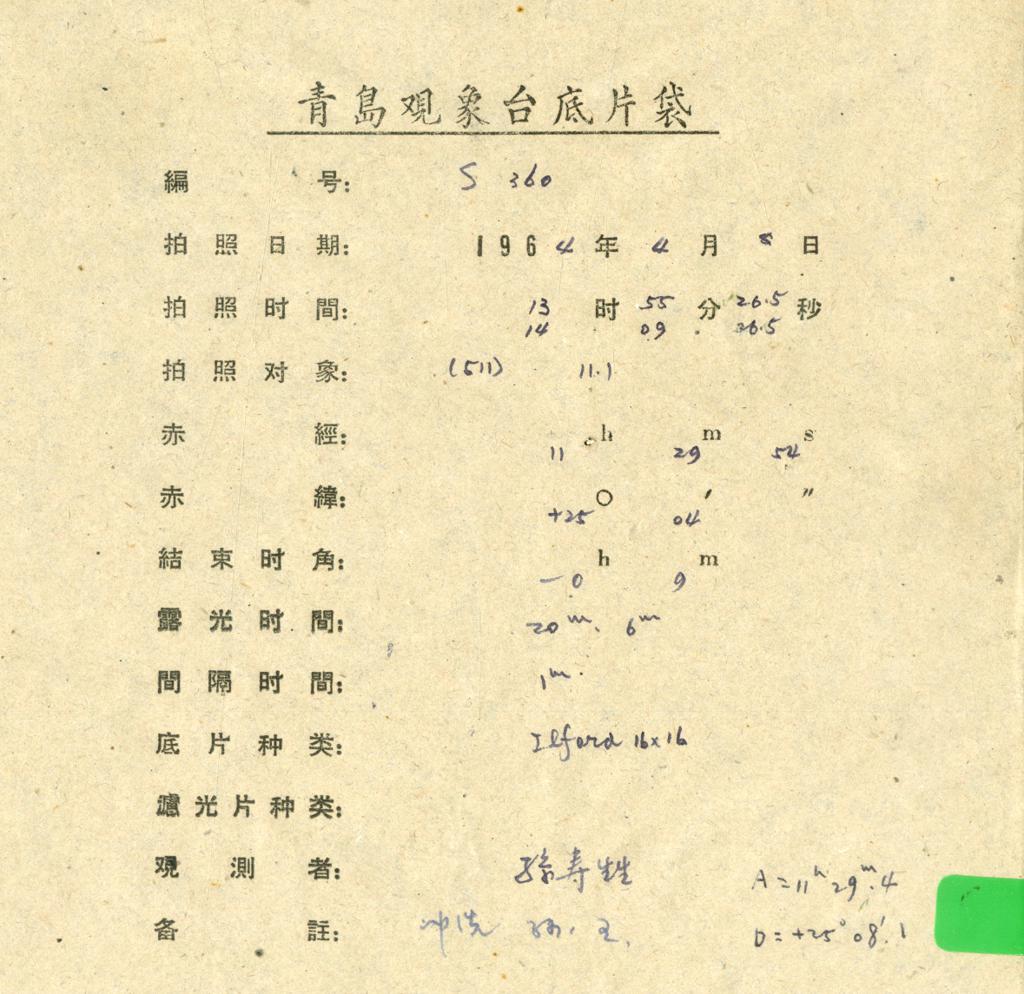 青島观象台底片袋
編号: S 360
拍照日期: 1964年4月8日
拍照时間: 13时55分26.5秒
14 09 26.5
拍照对象: (511) 11.1
赤經: 11h 29m 54s
赤緯: +25° 04′ ″
結束时角: -0h 9m
露光时間: 20m. 6m
間隔时間: 1m.
底片种类: Ilford 16×16
濾光片种类:
观測者: 孫寿
A=11h 29m.4
备註: 冲洗 孙.王.
D=+25°08′.1